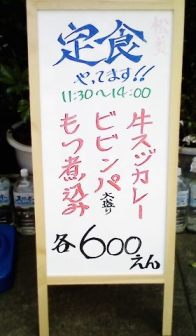 定食
やってます!!
11:30〜14:00
牛スジカレー
ビビンパ大盛り
もつ煮込み
各600えん